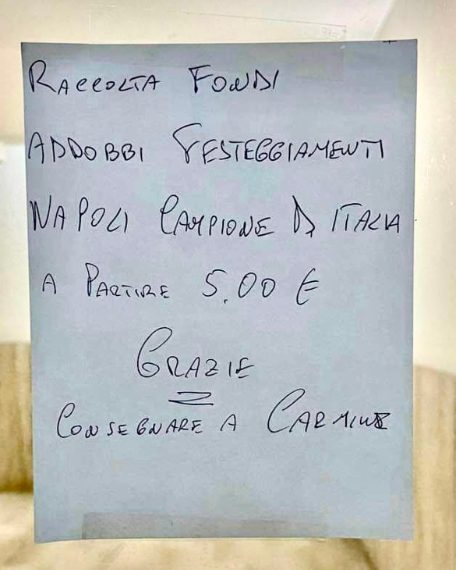 RACCOLTA FONDI
ADDOBBI FESTEGGIAMENTI
NAPOLI CAMPIONE D, ITALIA
A PARTIRE 5.00 €
GRAZIE
CONSEGNARE A CARMINE